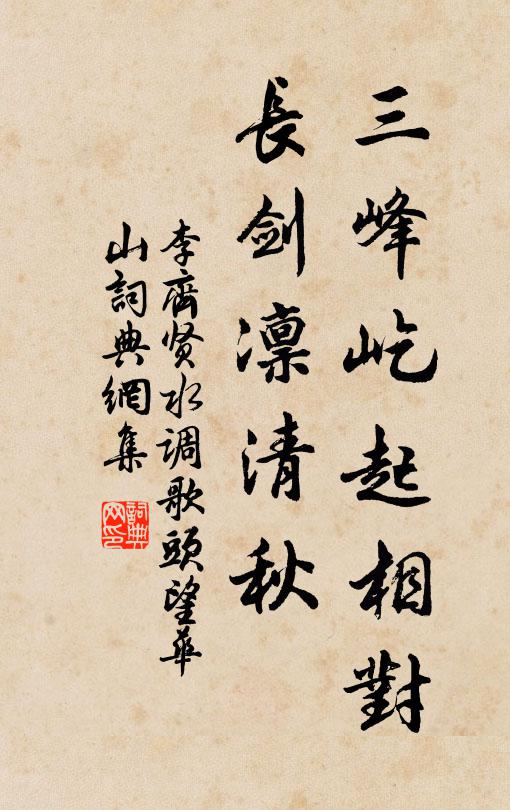 三峰屹起相對
長劍凛清秋
李齊贤水调歌頭望華
山詞典網集
詞典
网印